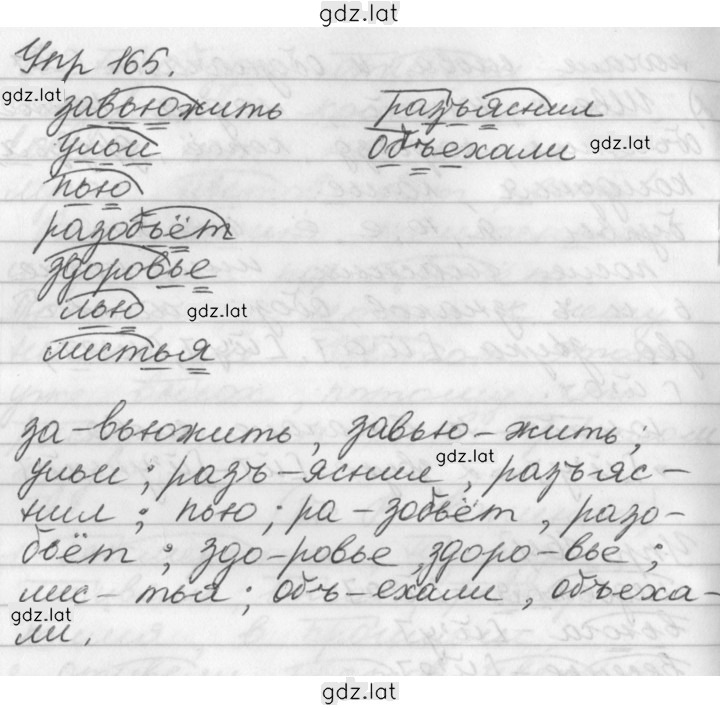 gdz.lat
Упр 165.
gdz.lat
завьюжить разъяснил
ульи объехали gdz.lat
пью
разобьёт
здоровье
лью gdz.lat
листья
за-вьюжить, завью-жить;
gdz.lat
ульи; разъ-яснил, разъяс-
нил; пью; ра-зобьёт, разо-
бьёт; здо-ровье, здоро-вье;
лис-тья; объ-ехали, объеха-
gdz.lat
ли.
gdz.lat